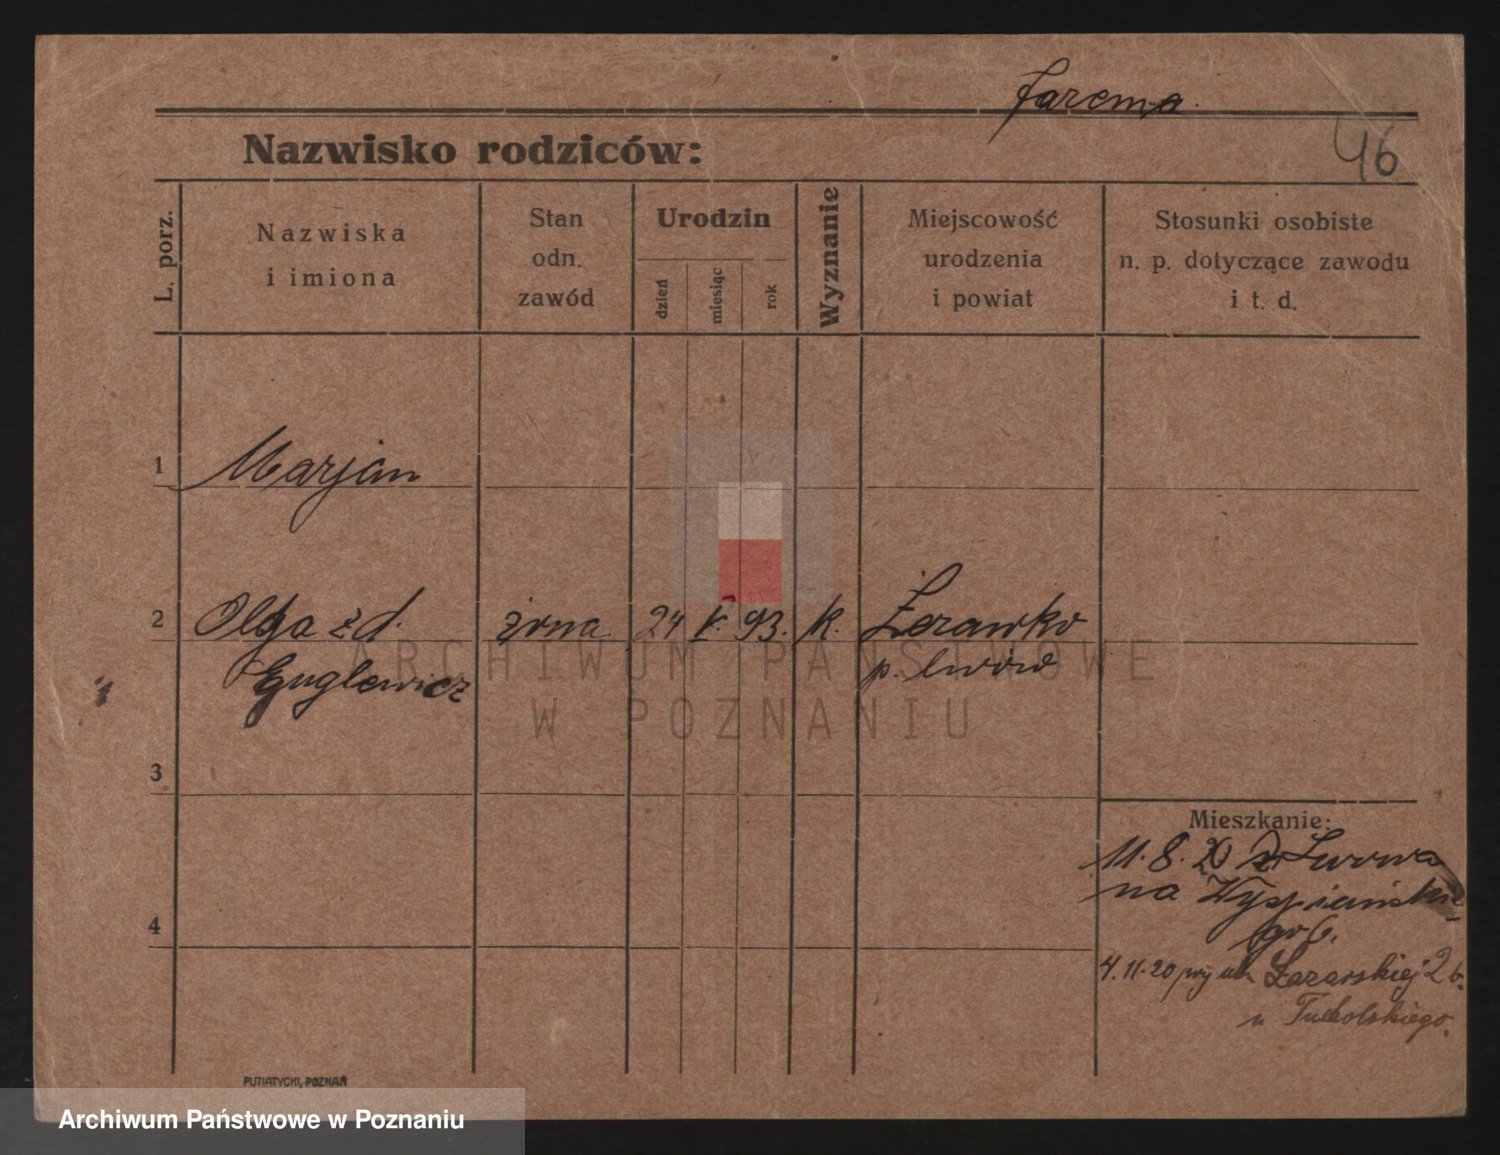 Jarema.
46
Nazwisko rodziców:
L. porz.
Nazwiska
i imiona
Stan
odn.
zawód
Urodzin
dzień
miesiąc
rok
Wyznanie
Miejscowość
urodzenia
i powiat
Stosunki osobiste
n. p. dotyczące zawodu
i t. d.
1
Marjan
2
Olga z d.
żona
24
V.
93.
k.
Żerawko
Guglewicz
p. lwów
ARCHIWUM PAŃSTWOWE
W POZNANIU
3
Mieszkanie:
11. 8. 20 Ze Lwowa
na Wyspiańskie
go 6.
4
4. 11. 20 przy ul. Łazarskiej 2 b.
u Tucholskiego.
PUTIATYCKI, POZNAŃ
Archiwum Państwowe w Poznaniu